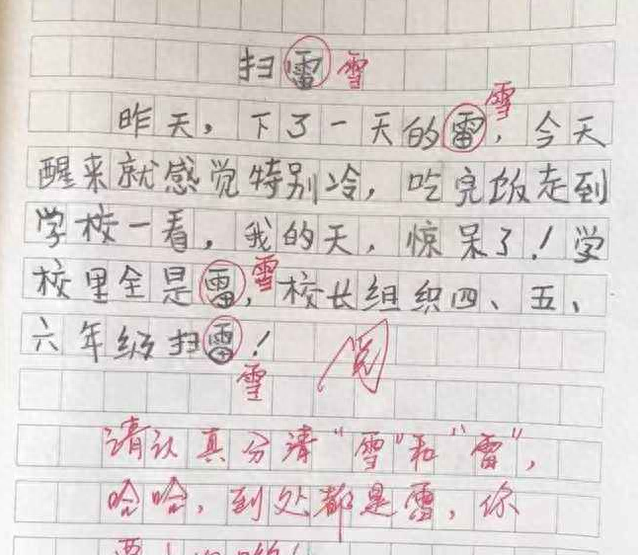 扫雷雪
昨天，下了一天的雷，今天
雪
醒来就感觉特别冷，吃完饭走到
学校一看，我的天，惊呆了！学
校里全是雷，雪校长组织四、五、
六年级扫雷！
雪
阅
请认真分清“雪”和“雷”，
哈哈，到处都是雷，你